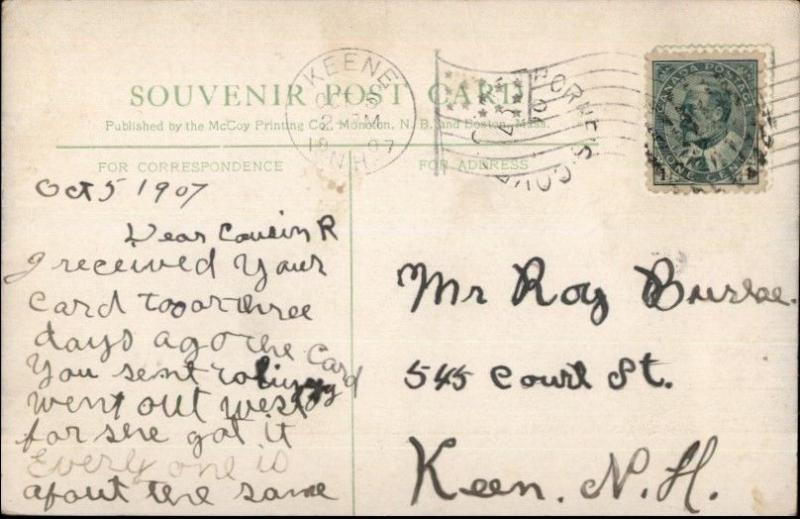 SOUVENIR POST CARD
Published by the McCoy Printing Co., Moncton, N. B. and Boston, Mass.
FOR CORRESPONDENCE
FOR ADDRESS
KEENE
OCT
1907
N.H.
CANADA POSTAGE
ONE CENT
Oct 5 1907
Dear Cousin R
I received your
card too or three
days ago the card
You sent to
went out west
for she got it
Every one is
about the same
Mr Roy
545 Court St.
Keen. N. H.